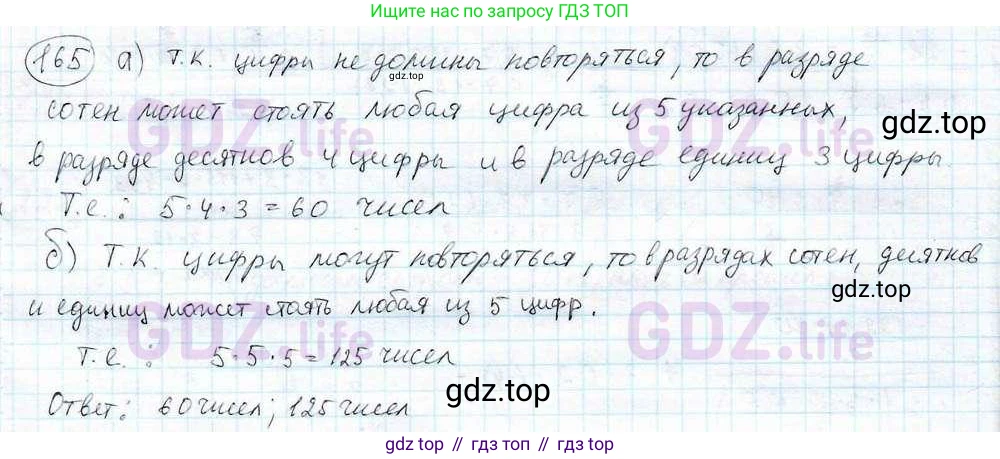 Ищите нас по запросу ГДЗ ТОП
165 а) Т.К. цифры не должны повторяться, то в разряде
gdz.top
сотен может стоять любая цифра из 5 указанных,
GDZ.life GDZ.life
gdz.top
в разряде десятков 4 цифры и в разряде единиц 3 цифры.
Т.е.: 5·4·3=60 чисел
б) Т.К. цифры могут повторяться, то в разрядах сотен, десятков
gdz.top
и единиц может стоять любая из 5 цифр.
GDZ.life GDZ.life
Т.е.: 5·5·5=125 чисел
gdz.top
Ответ: 60 чисел; 125 чисел
gdz.top // гдз топ // gdz.top